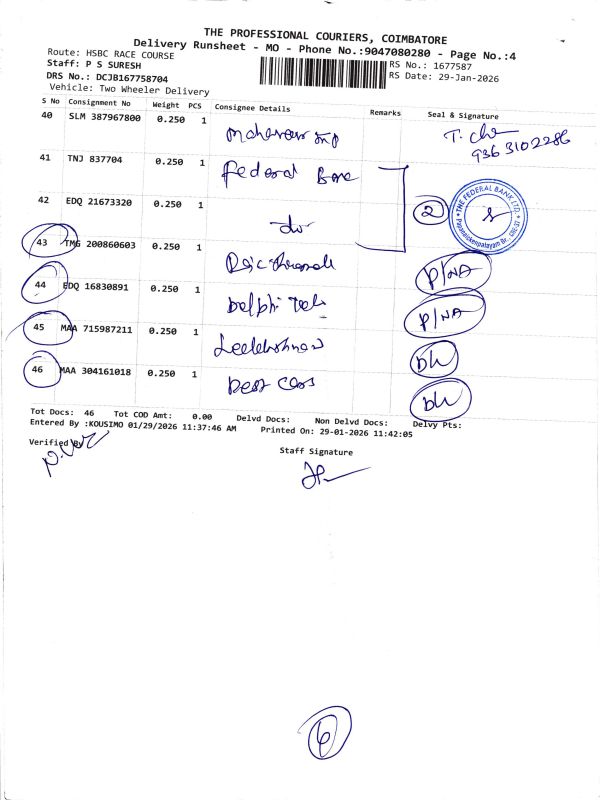 THE PROFESSIONAL COURIERS, COIMBATORE
Delivery Runsheet - MO - Phone No.:9047080280 - Page No.:4
Route: HSBC RACE COURSE
Staff: P S SURESH
DRS No.: DCJB167758704
Vehicle: Two Wheeler Delivery
RS No.: 1677587
RS Date: 29-Jan-2026
S No Consignment No Weight PCS Consignee Details Remarks Seal & Signature
40 SLM 387967800 0.250 1
9363102286
41 TNJ 837704 0.250 1 Federal Bank
42 EDQ 21673320 0.250 1 do 2
THE FEDERAL BANK LTD.
43 TMG 200860603 0.250 1 P/NA
44 EDQ 16830891 0.250 1 Delphi P/NA
45 MAA 715987211 0.250 1 DL
46 MAA 304161018 0.250 1 Best DL
Tot Docs: 46 Tot COD Amt: 0.00 Delvd Docs: Non Delvd Docs: Delvy Pts:
Entered By :KOUSIMO 01/29/2026 11:37:46 AM Printed On: 29-01-2026 11:42:05
Verified By
Staff Signature
6